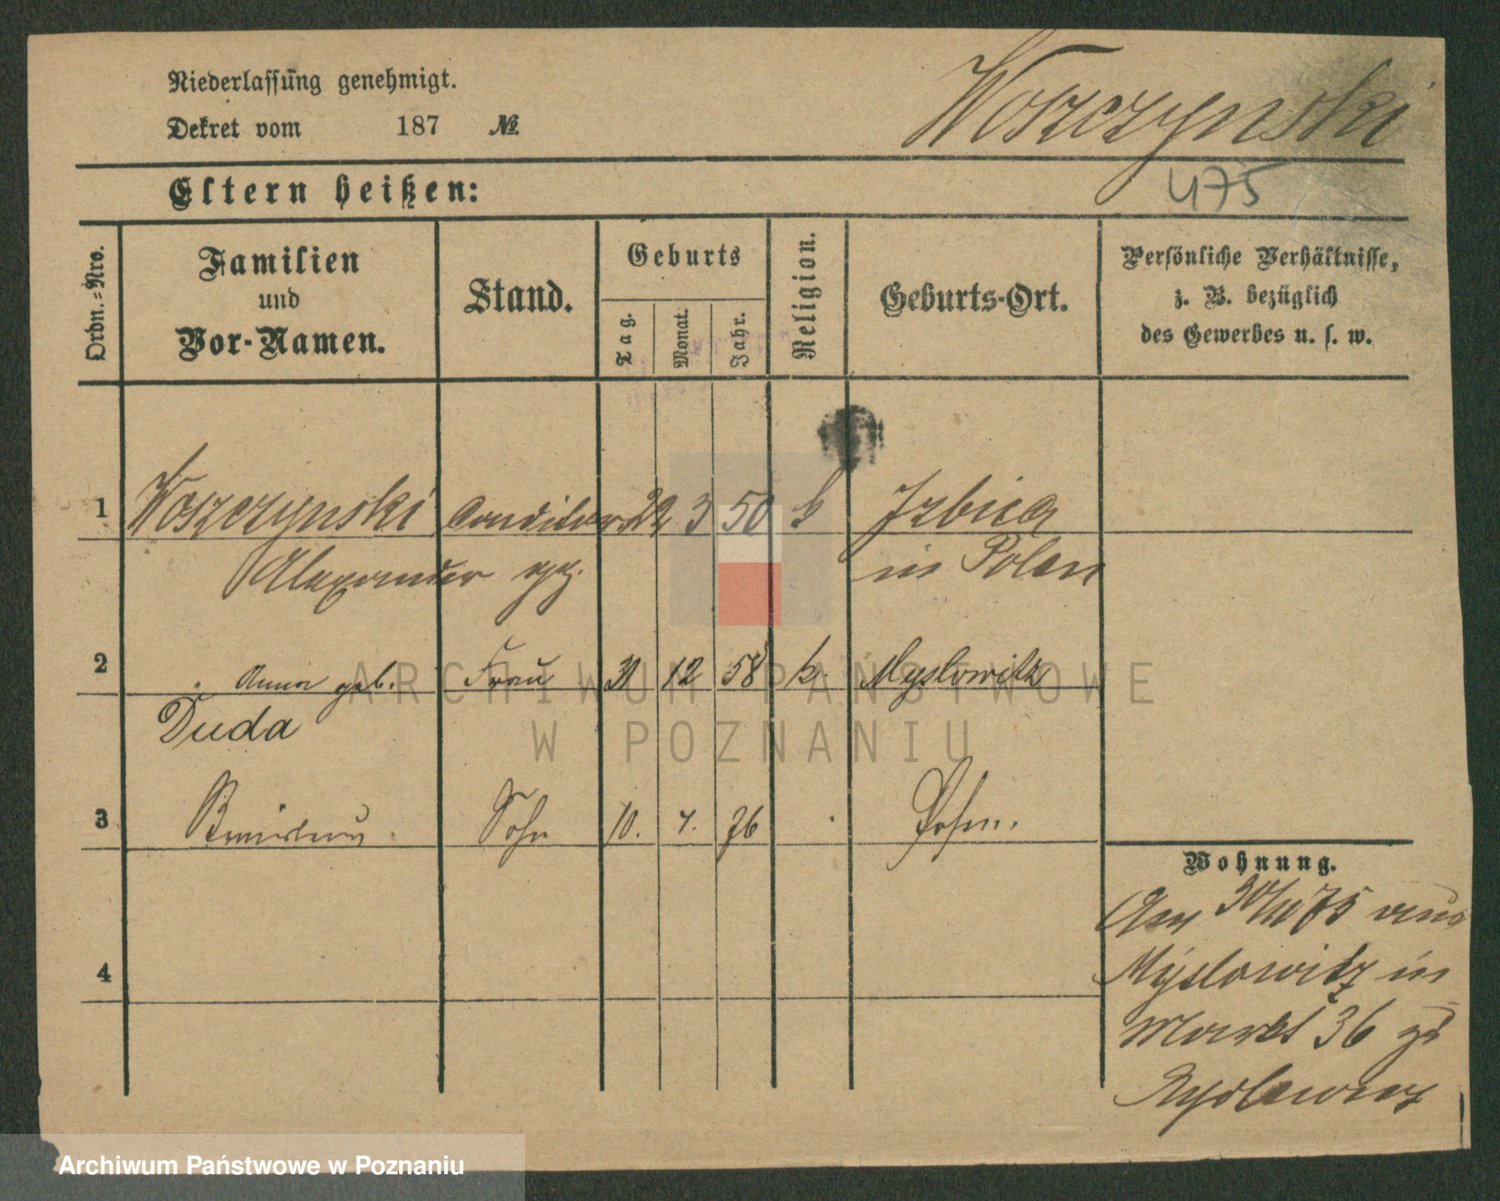 Niederlassung genehmigt.
Dekret vom 187 №
Woszczynski
475
Eltern heißen:
Ordn.=Nro.
Familien
und
Vor-Namen.
Stand.
Geburts
Tag.
Monat.
Jahr.
Religion.
Geburts-Ort.
Persönliche Verhältnisse,
z. B. bezüglich
des Gewerbes u. s. w.
1 Woszczynski Conditor 22 3 50 k Izbica
Alexander in Polen
2 Anna geb. Frau 31 12 58 k. Myslowitz
Duda
3 Sohn 10. 7. 76 Posen.
4
Wohnung.
30/11 75 aus
Myslowitz in
Markt 36 zu
ARCHIWUM PAŃSTWOWE
W POZNANIU
Archiwum Państwowe w Poznaniu